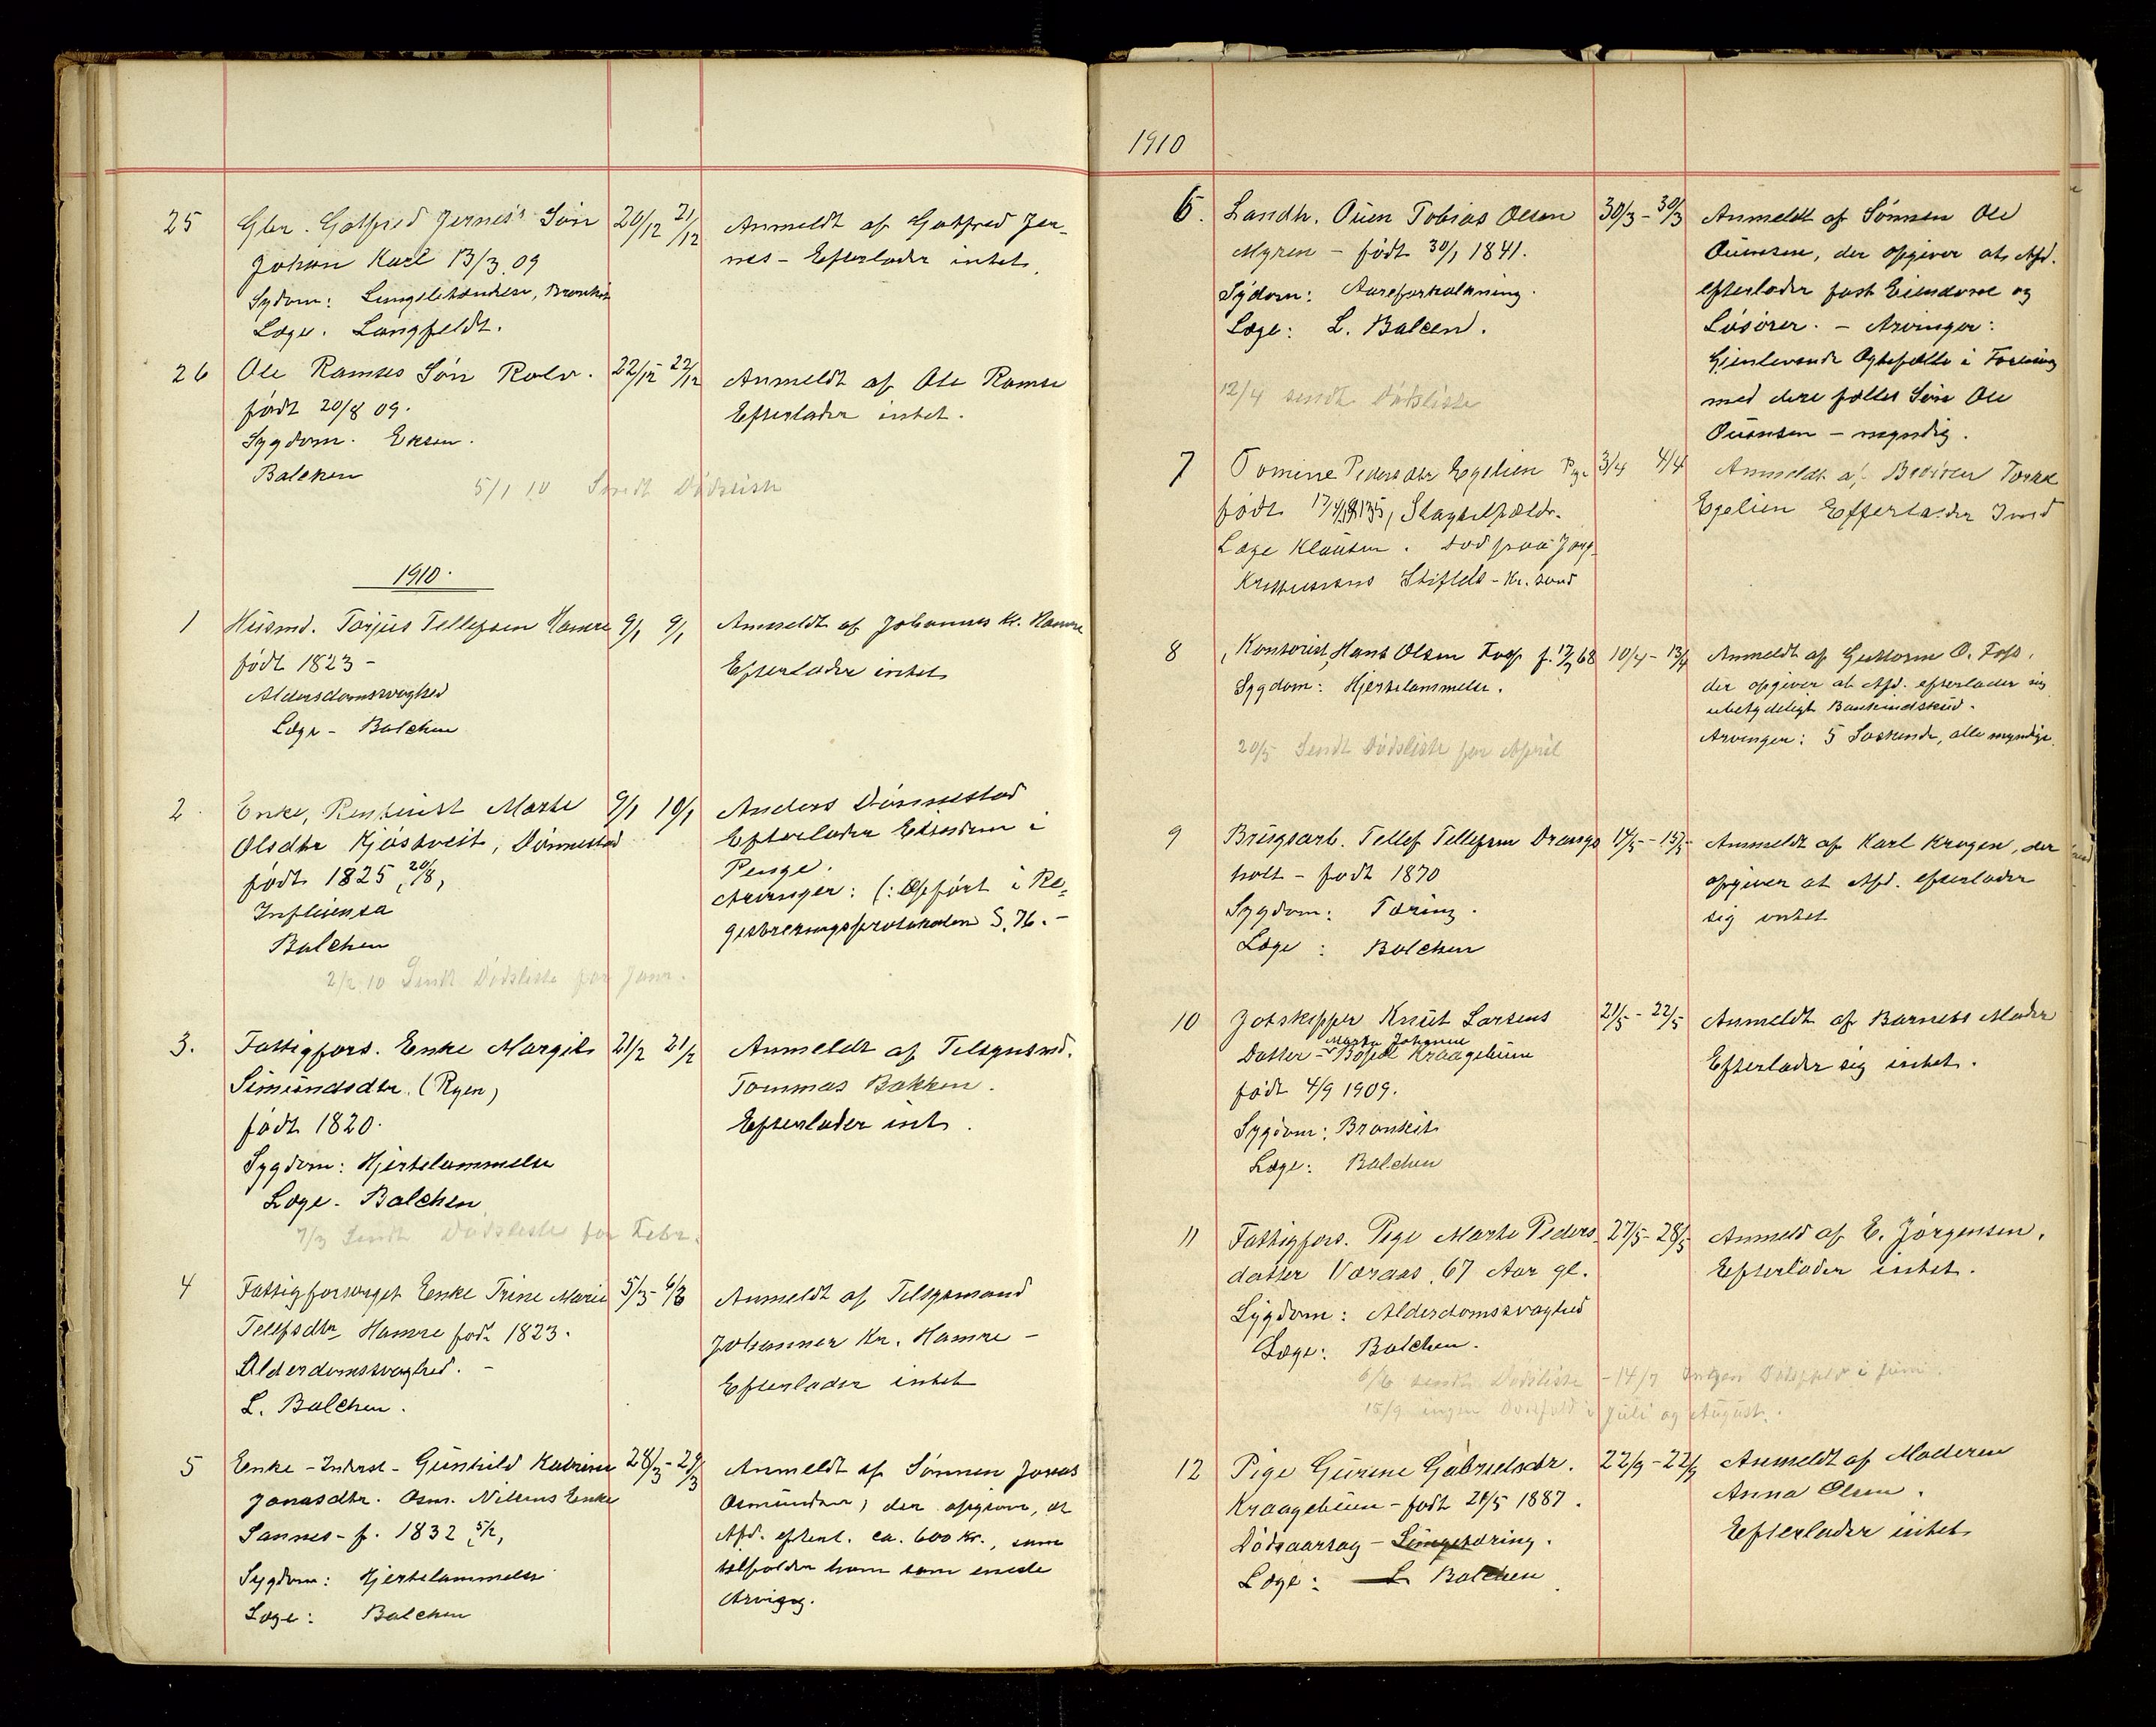 25 Gbr. Gotfred Jernes's Søn 20/12 21/12 Anmeldt af Gotfred Jer-
Johan Karl 13/3 09 nes - Efterlader intet.
Sydom: Lungebetændelse, Bronkit
Læge. Langfeldt.
26 Ole Ramses Søn Rolv. 22/12 22/12 Anmeldt af Ole Ramse
født 20/8 09. Efterlader intet.
Sygdom.
Balchen
5/1 10 Sendt Dødsliste
1910.
1 Husmd. Torjus Tellefsen Hamre 9/1 9/1 Anmeldt af Johannes Kr. Hamre
født 1823 - Efterlader intet
Alderdomssvaghed
Læge - Balchen
2 Enke, Marte 9/1 10/1 Anders Dønnestad
Olsdtr Kjøstveit, Dønnestad Efterlader Eiendom i
født 1825, 20/8, Penge.
Influensa Arvinger: (: Opført i Re-
Balchen S. 76. -
2/2 10 Sendt Dødsliste for Janr.
3. Fattigfors. Enke Margit 21/2 21/2 Anmeldt af
Simundsdtr. (Ryen) Tommas Bakken.
født 1820. Efterlader int.
Sygdom: Hjertelammelse
Læge. Balchen
7/3 Sendt Dødsliste for Febr.
4 Fattigforsørget Enke Trine Marie 5/3 - 6/3 Anmeldt af Tilsynsmand
Tellefsdtr Hamre født 1823. Johannes Kr. Hamre -
Alderdomssvaghed. - Efterlader intet
L. Balchen.
5 Enke - Inderst - Gunhild Katrine 28/3 - 29/3 Anmeldt af Sønnen Jonas
Jonasdtr. Osm. Nilsens Enke Osmundsen, der opgiver, at
Sannes - f. 1832 5/2, Afd. efterl. ca. 600 Kr., som
Sygdom: Hjertelammelse tilfalder ham som eneste
Læge: Balchen Arving.
1910
6. Landh. Ouen Tobias Olsen 30/3 - 30/3 Anmeldt af Sønnen Ole
Myren - født 30/1 1841. Ouensen, der opgiver at Afd.
Sydom: Aareforkalkning. efterlader fast Eiendom og
Læge: L. Balcen. Løsører. - Arvinger:
Gjenlevende Ægtefælle i Forening
12/4 sendt Dødsliste med dere fælles Søn Ole
Ouensen - myndig.
7 Tomine Pedersdtr Egelien Pige 3/4 4/4 Anmeldt af Broderen
født Egelien Efterlader Intet
Læge Klausen. Død paa
Stiftels - Kr. sand
8 Kontorist, Hans Olsen Foss 10/4 - 13/4 Anmeldt af Guttorm O. Foss,
Sygdom: Hjertelammelse. der opgiver at Afd. efterlader sig
ubetydeligt Bankindskud.
20/5 Sendt Dødsliste for April Arvinger: 5 Søskende, alle myndige.
9 Brugsarb. Tellef Tellefsen Drangs- 14/5 - 15/5 Anmeldt af Karl Krogen, der
holt - født 1870 opgiver at Afd. efterlader
Sygdom: Tæring. sig intet
Læge: Balchen
10 Jotskipper Knut Larsens 21/5 - 22/5 Anmeldt af Barnets Moder
Marta Johanne
Datter - Bojel Kraagebuen Efterlader sig intet.
født 4/9 1909.
Sygdom: Bronkit
Læge: Balchen
11 Fattigfors. Pige Marte Peders- 27/5 - 28/5 Anmeld af E. Jørgensen.
datter Væraas, 67 Aar gl. Efterlader intet.
Sygdom: Alderdomssvaghed
Læge: Balchen.
6/6 sendt Dødsliste - 14/7 Ingen Dødsfald i Juni.
15/9 ingen Dødsfald i Juli og August.
12 Pige Gurine Gabrielsdtr. 22/9 - 22/9 Anmeldt af Moderen
Kraagebuen - født 21/5 1887. Anna Olsen.
Dødsaarsag - Lungetæring. Efterlader intet
Læge: L. Balchen